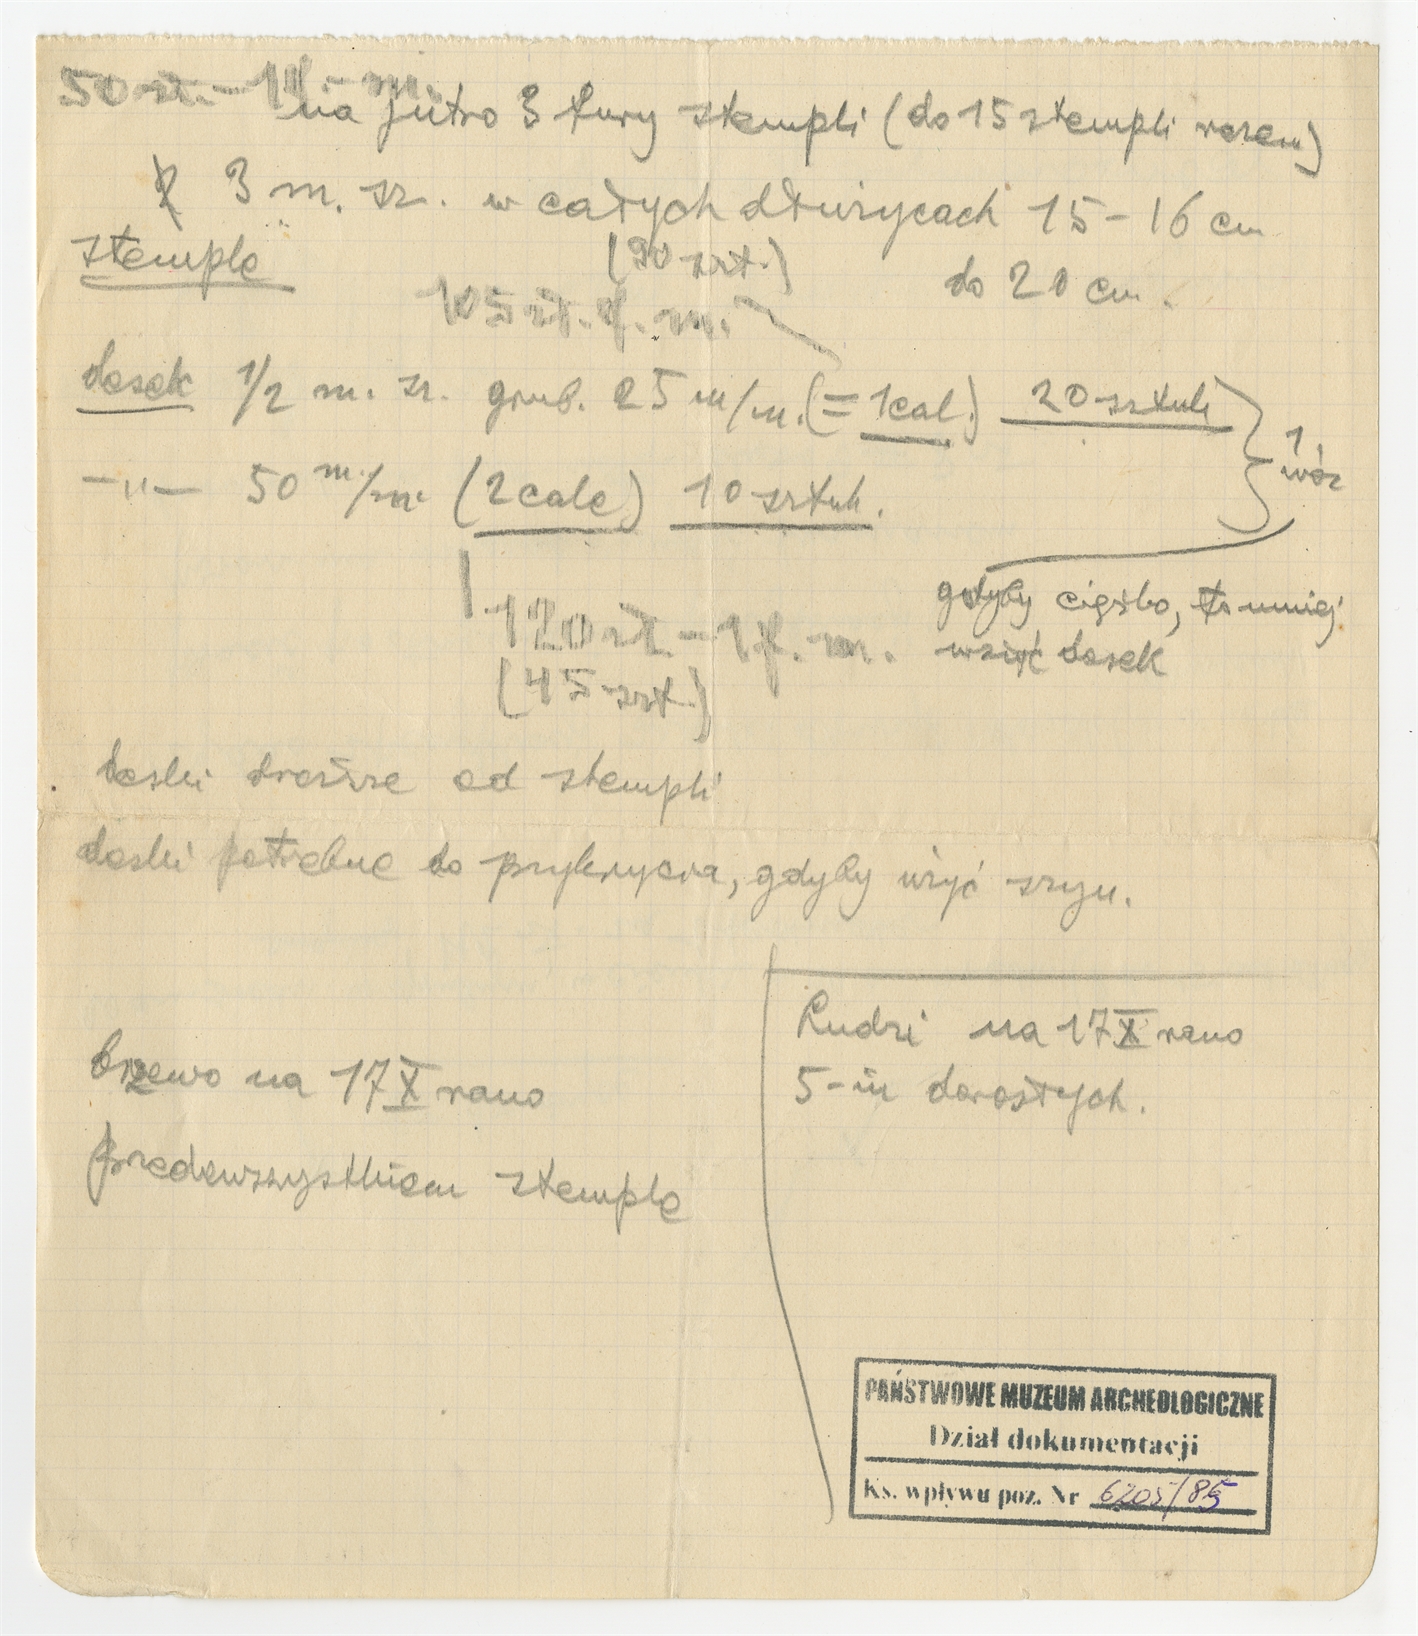 50 zł. - 1 f. m.
na jutro 3 fury stempli (do 15 stempli razem)
3 m. sz. w całych dłużycach 15-16 cm
stemple (90 szt.) do 20 cm.
105 zł. f. m.
desek 1/2 m. sz. grub. 25 m/m. (= 1 cal.) 20 sztuk
-„- 50 m/m (2 cale) 10 sztuk. } 1 wóz
gdyby ciężko, to mniej
120 zł. - 1 f. m. wziąć desek
(45 szt.)
deski droższe od stempli
deski potrzebne do przykrycia, gdyby użyć szyn.
Ludzi na 17 X rano
5-iu dorosłych.
drzewo na 17 X rano
przedewszystkiem stemple
PAŃSTWOWE MUZEUM ARCHEOLOGICZNE
Dział dokumentacji
Ks. wpływu poz. Nr 6205/85